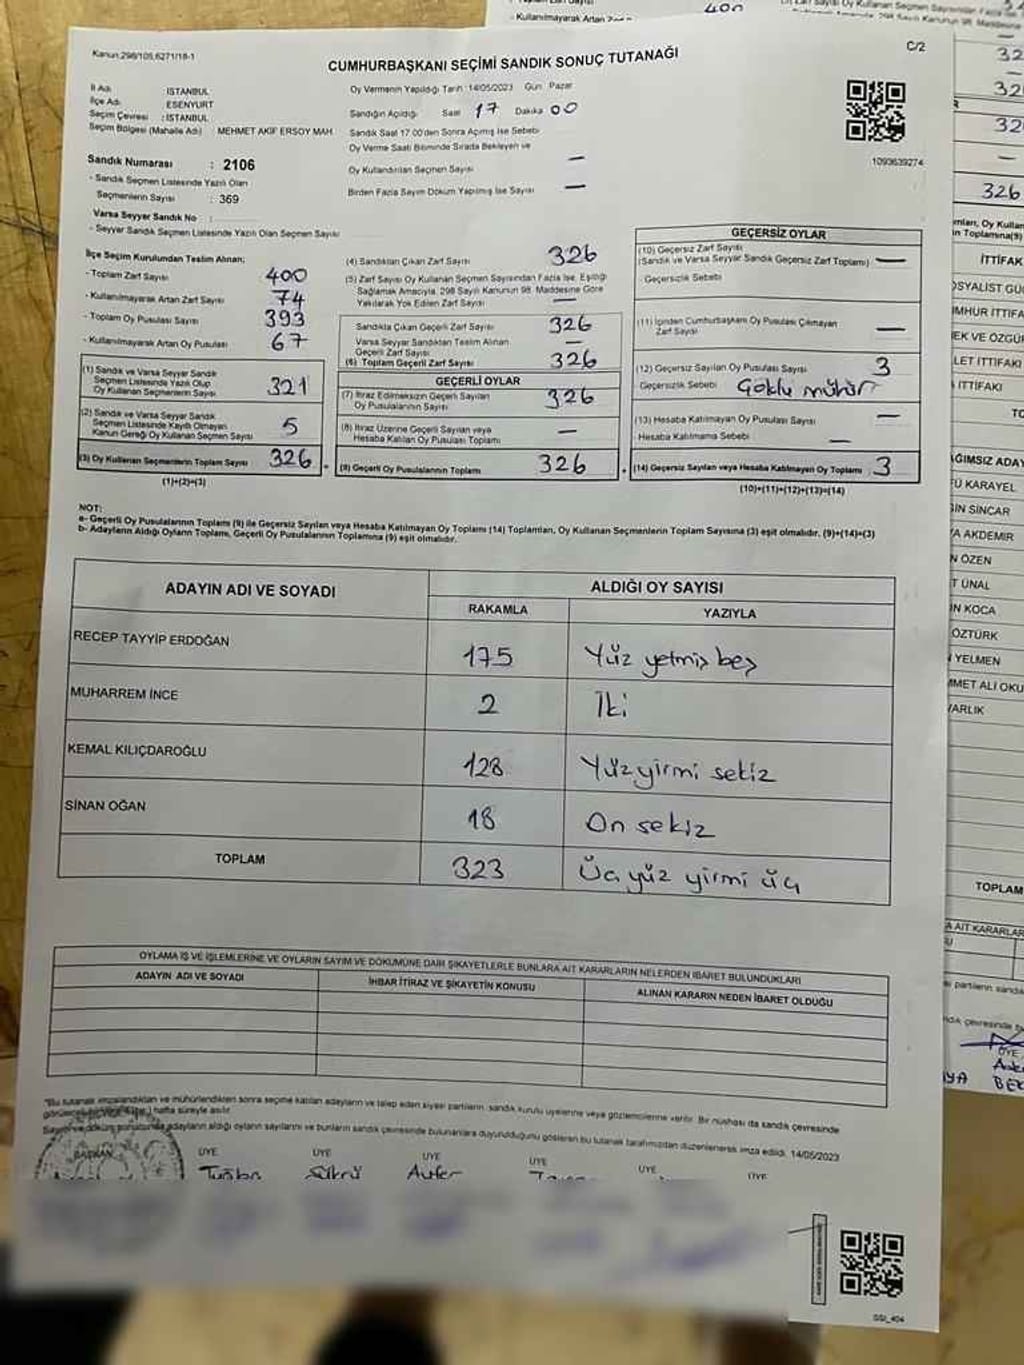 Kullanılmayarak Artan
400
Kanun:298/105,6271/18-1
C/2
CUMHURBAŞKANI SEÇİMİ SANDIK SONUÇ TUTANAĞI
İl Adı : İSTANBUL
İlçe Adı : ESENYURT
Seçim Çevresi : İSTANBUL
Seçim Bölgesi (Mahalle Adı) MEHMET AKİF ERSOY MAH.
Oy Vermenin Yapıldığı Tarih :14/05/2023 Gün: Pazar
Sandığın Açıldığı Saat 17 Dakika 00
Sandık Saat 17.00'den Sonra Açılmış İse Sebebi
Oy Verme Saati Bitiminde Sırada Bekleyen ve
Oy Kullandırılan Seçmen Sayısı —
Birden Fazla Sayım Döküm Yapılmış İse Sayısı —
1093639274
Sandık Numarası : 2106
- Sandık Seçmen Listesinde Yazılı Olan
Seçmenlerin Sayısı : 369
Varsa Seyyar Sandık No :
- Seyyar Sandık Seçmen Listesinde Yazılı Olan Seçmen Sayısı
İlçe Seçim Kurulundan Teslim Alınan;
- Toplam Zarf Sayısı 400
- Kullanılmayarak Artan Zarf Sayısı 74
- Toplam Oy Pusulası Sayısı 393
- Kullanılmayarak Artan Oy Pusulası 67
(1) Sandık ve Varsa Seyyar Sandık
Seçmen Listesinde Yazılı Olup
Oy Kullanan Seçmenlerin Sayısı 321
(2) Sandık ve Varsa Seyyar Sandık
Seçmen Listesinde Kayıtlı Olmayan
Kanun Gereği Oy Kullanan Seçmen Sayısı 5
(3) Oy Kullanan Seçmenlerin Toplam Sayısı 326
(1)+(2)=(3)
(4) Sandıktan Çıkan Zarf Sayısı 326
(5) Zarf Sayısı Oy Kullanan Seçmen Sayısından Fazla İse, Eşitliği
Sağlamak Amacıyla, 298 Sayılı Kanunun 98. Maddesine Göre
Yakılarak Yok Edilen Zarf Sayısı —
Sandıkta Çıkan Geçerli Zarf Sayısı 326
Varsa Seyyar Sandıktan Teslim Alınan
Geçerli Zarf Sayısı —
(6) Toplam Geçerli Zarf Sayısı 326
GEÇERLİ OYLAR
(7) İtiraz Edilmeksizin Geçerli Sayılan
Oy Pusulalarının Sayısı 326
(8) İtiraz Üzerine Geçerli Sayılan veya
Hesaba Katılan Oy Pusulası Toplamı —
(9) Geçerli Oy Pusulalarının Toplamı 326
GEÇERSİZ OYLAR
(10) Geçersiz Zarf Sayısı
(Sandık ve Varsa Seyyar Sandık Geçersiz Zarf Toplamı) —
- Geçersizlik Sebebi
(11) İçinden Cumhurbaşkanı Oy Pusulası Çıkmayan
Zarf Sayısı —
(12) Geçersiz Sayılan Oy Pusulası Sayısı 3
Geçersizlik Sebebi Çoklu mühür
(13) Hesaba Katılmayan Oy Pusulası Sayısı —
- Hesaba Katılmama Sebebi —
(14) Geçersiz Sayılan veya Hesaba Katılmayan Oy Toplamı 3
(10)+(11)+(12)+(13)=(14)
NOT:
a- Geçerli Oy Pusulalarının Toplamı (9) ile Geçersiz Sayılan veya Hesaba Katılmayan Oy Toplamı (14) Toplamları, Oy Kullanan Seçmenlerin Toplam Sayısına (3) eşit olmalıdır. (9)+(14)=(3)
b- Adayların Aldığı Oyların Toplamı, Geçerli Oy Pusulalarının Toplamına (9) eşit olmalıdır.
ADAYIN ADI VE SOYADI
ALDIĞI OY SAYISI
RAKAMLA YAZIYLA
RECEP TAYYİP ERDOĞAN 175 Yüz yetmiş beş
MUHARREM İNCE 2 İki
KEMAL KILIÇDAROĞLU 128 Yüz yirmi sekiz
SİNAN OĞAN 18 On sekiz
TOPLAM 323 Üç yüz yirmi üç
OYLAMA İŞ VE İŞLEMLERİNE VE OYLARIN SAYIM VE DÖKÜMÜNE DAİR ŞİKAYETLERLE BUNLARA AİT KARARLARIN NELERDEN İBARET BULUNDUKLARI
ADAYIN ADI VE SOYADI İHBAR İTİRAZ VE ŞİKAYETİN KONUSU ALINAN KARARIN NEDEN İBARET OLDUĞU
"Bu tutanak imzalandıktan ve mühürlendikten sonra seçime katılan adayların ve talep eden siyasi partilerin, sandık kurulu üyelerine veya gözlemcilerine verilir. Bir nüshası da sandık çevresinde
hafta süreyle asılır.
adayların aldığı oyların sayılarını ve bunların sandık çevresinde bulunanlara duyurulduğunu gösteren bu tutanak tarafımızdan düzenlenerek imza edildi. 14/05/2023
BAŞKAN ÜYE ÜYE ÜYE ÜYE ÜYE ÜYE
Tuğba Şükrü
GSI_404
326
İTTİFAK
OSYALİST GÜ
MHUR İTTİFA
EK VE ÖZGÜ
LET İTTİFAKI
İTTİFAKI
AĞIMSIZ ADAY
FÜ KARAYEL
SİN SİNCAR
A AKDEMİR
N ÖZEN
T ÜNAL
İN KOCA
ÖZTÜRK
YELMEN
MMET ALİ OKU
VARLIK
TOPLAM
A AİT KARARLAR
ÜYE